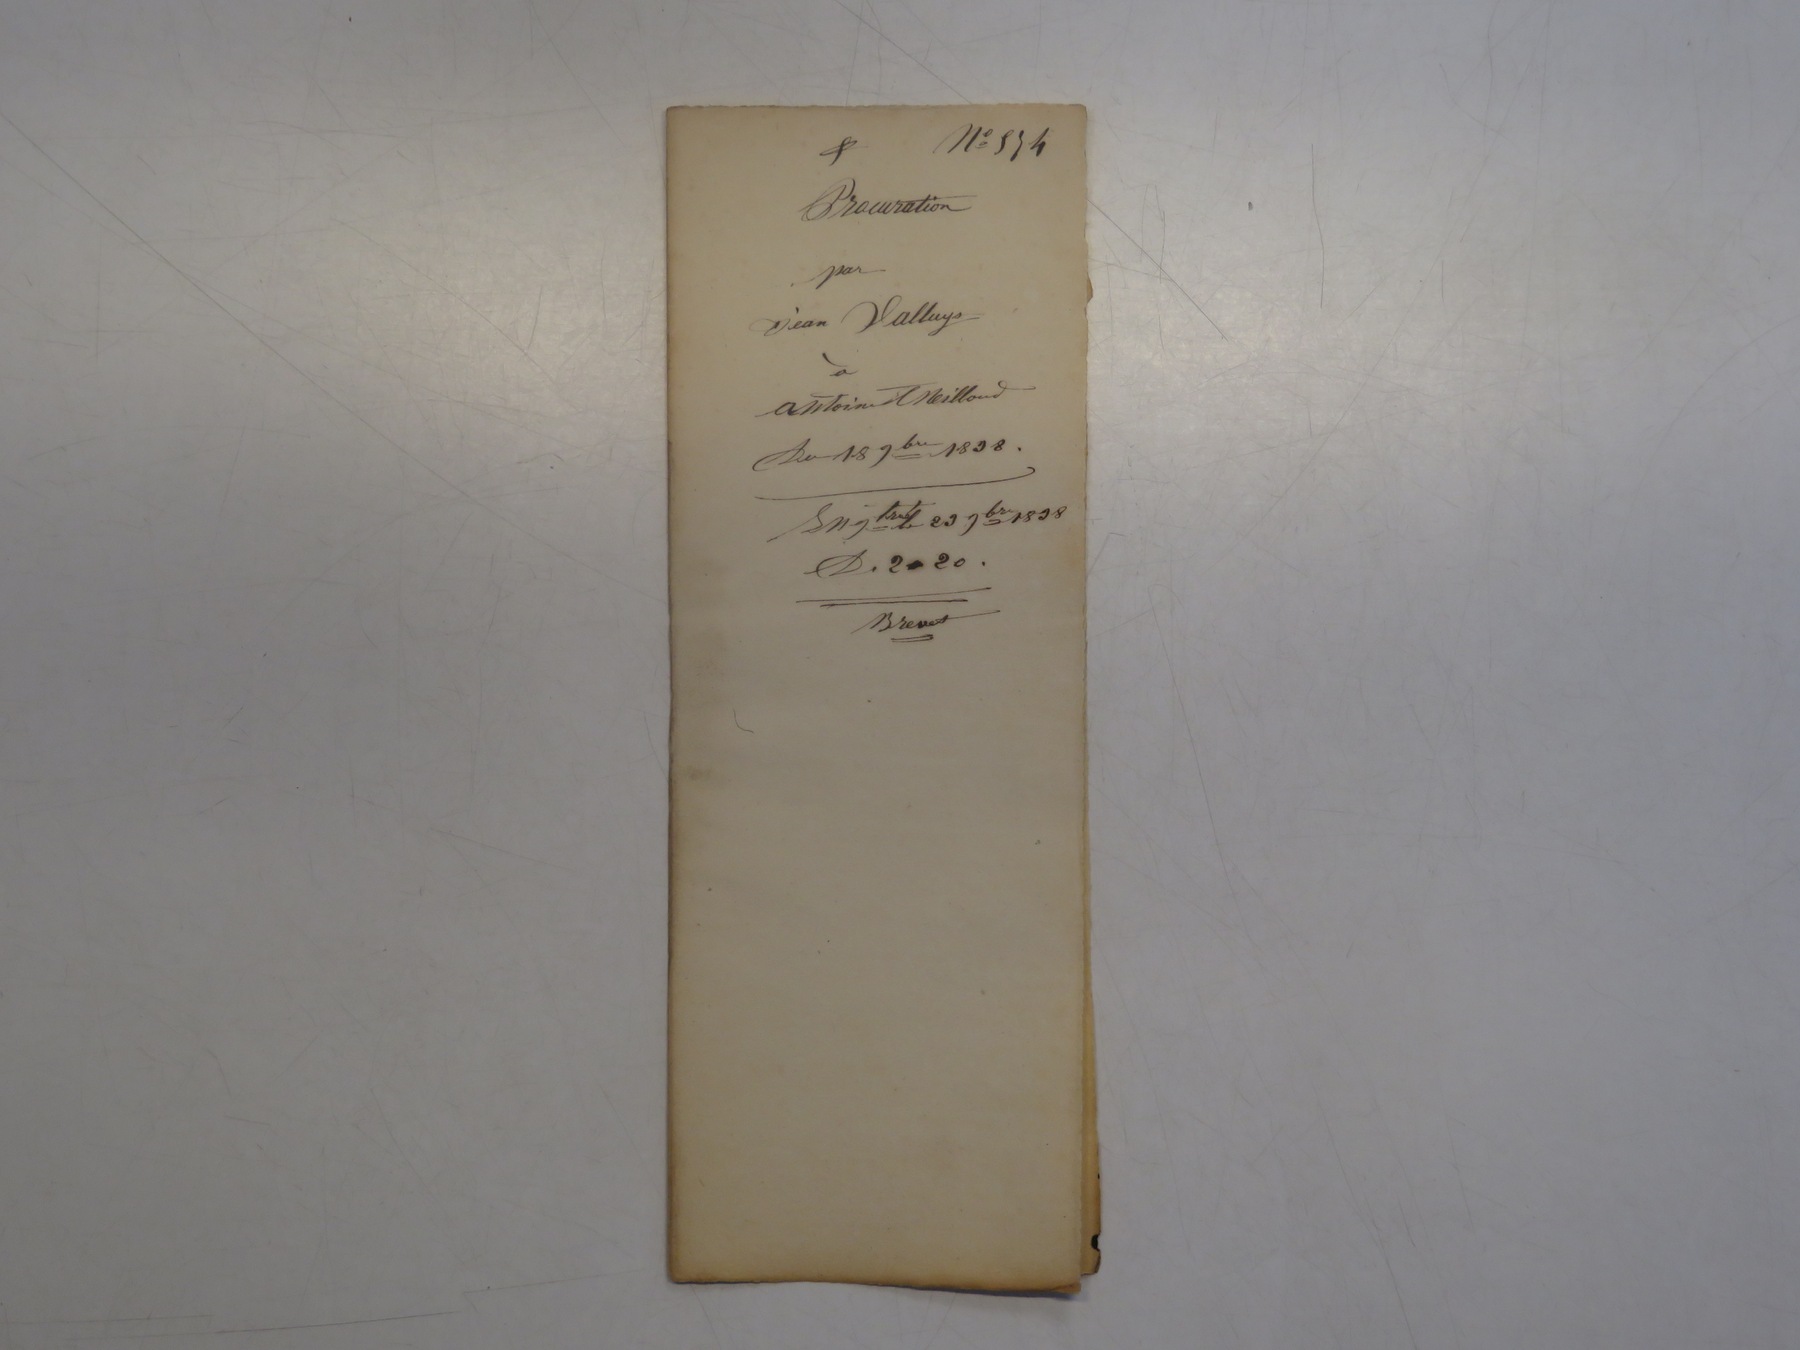 Nº 574
Procuration
par
Jean Valluys
à
Antoine Milloud
Du 18 9bre 1838.
Engtré le 23 9bre 1838
D. 2 20.
Brevet